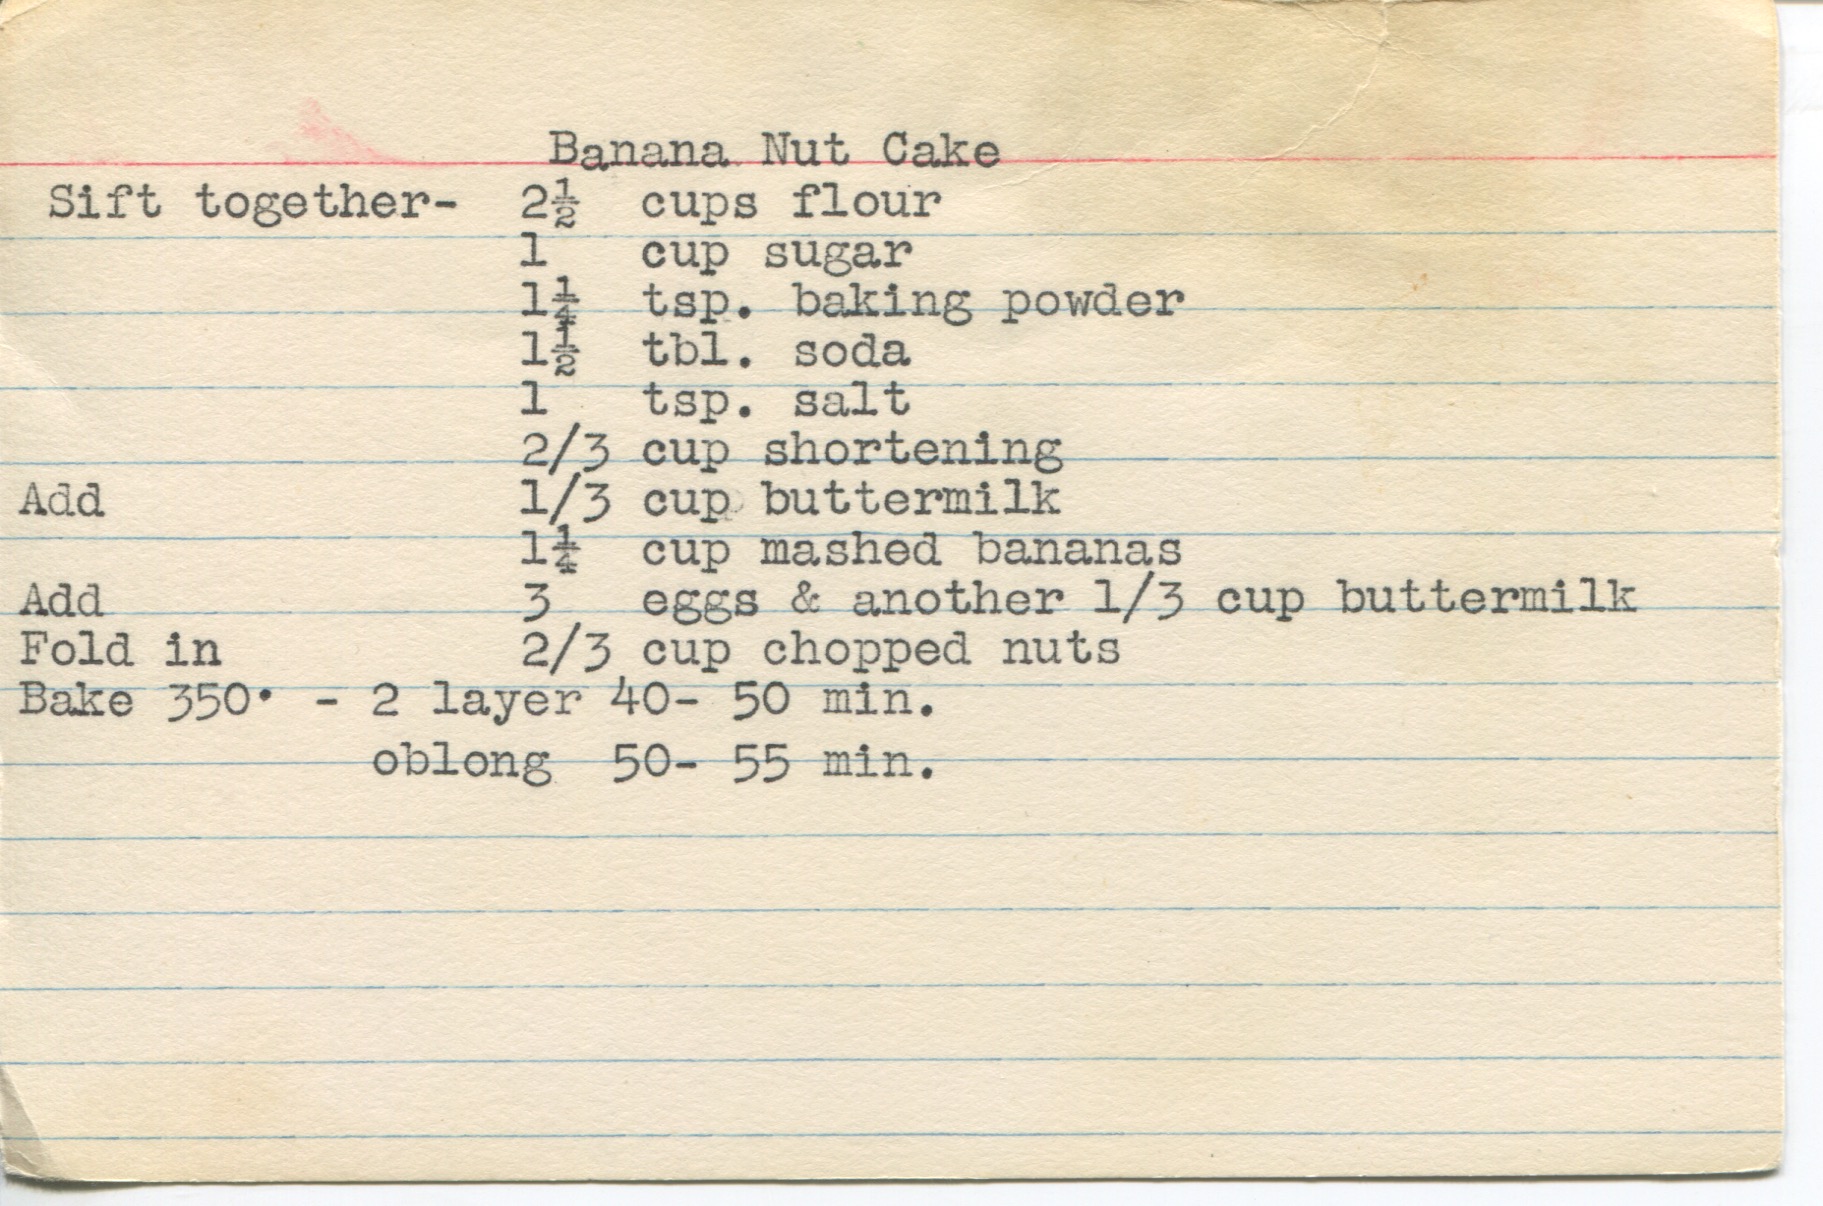 Banana Nut Cake
Sift together- 2½ cups flour
1 cup sugar
1¼ tsp. baking powder
1½ tbl. soda
1 tsp. salt
2/3 cup shortening
Add 1/3 cup buttermilk
1¼ cup mashed bananas
Add 3 eggs & another 1/3 cup buttermilk
Fold in 2/3 cup chopped nuts
Bake 350° - 2 layer 40- 50 min.
oblong 50- 55 min.